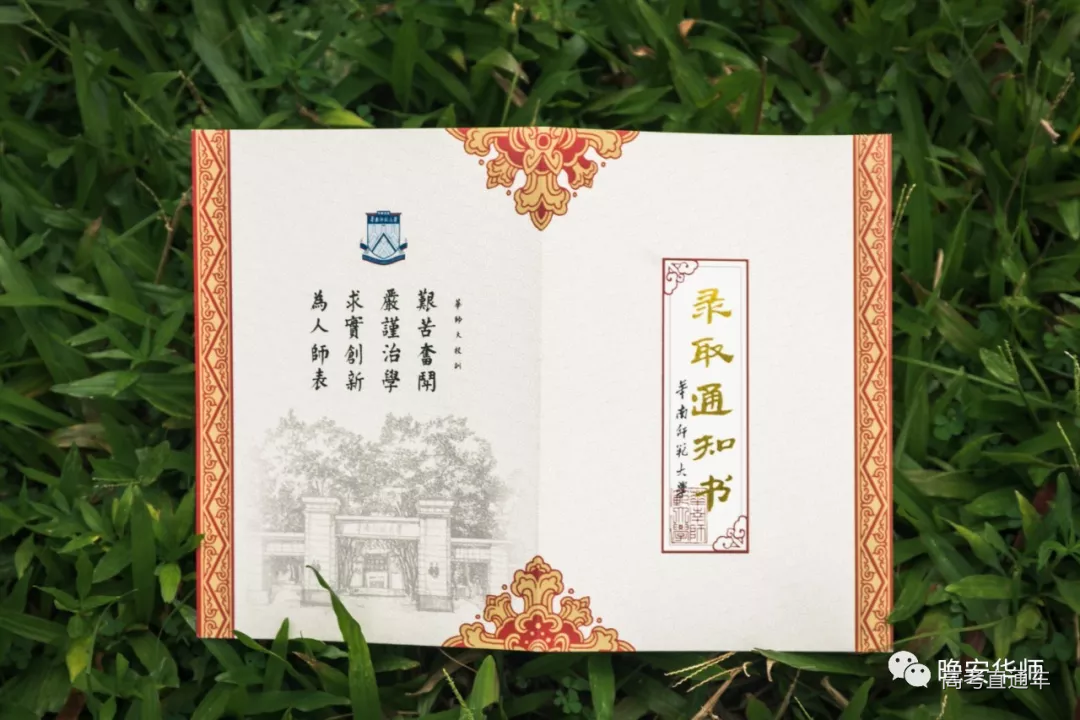 華師大校訓
艱苦奮鬥
嚴謹治學
求實創新
為人師表
录取通知书
華南師範大學
晚安华师
高考直通车